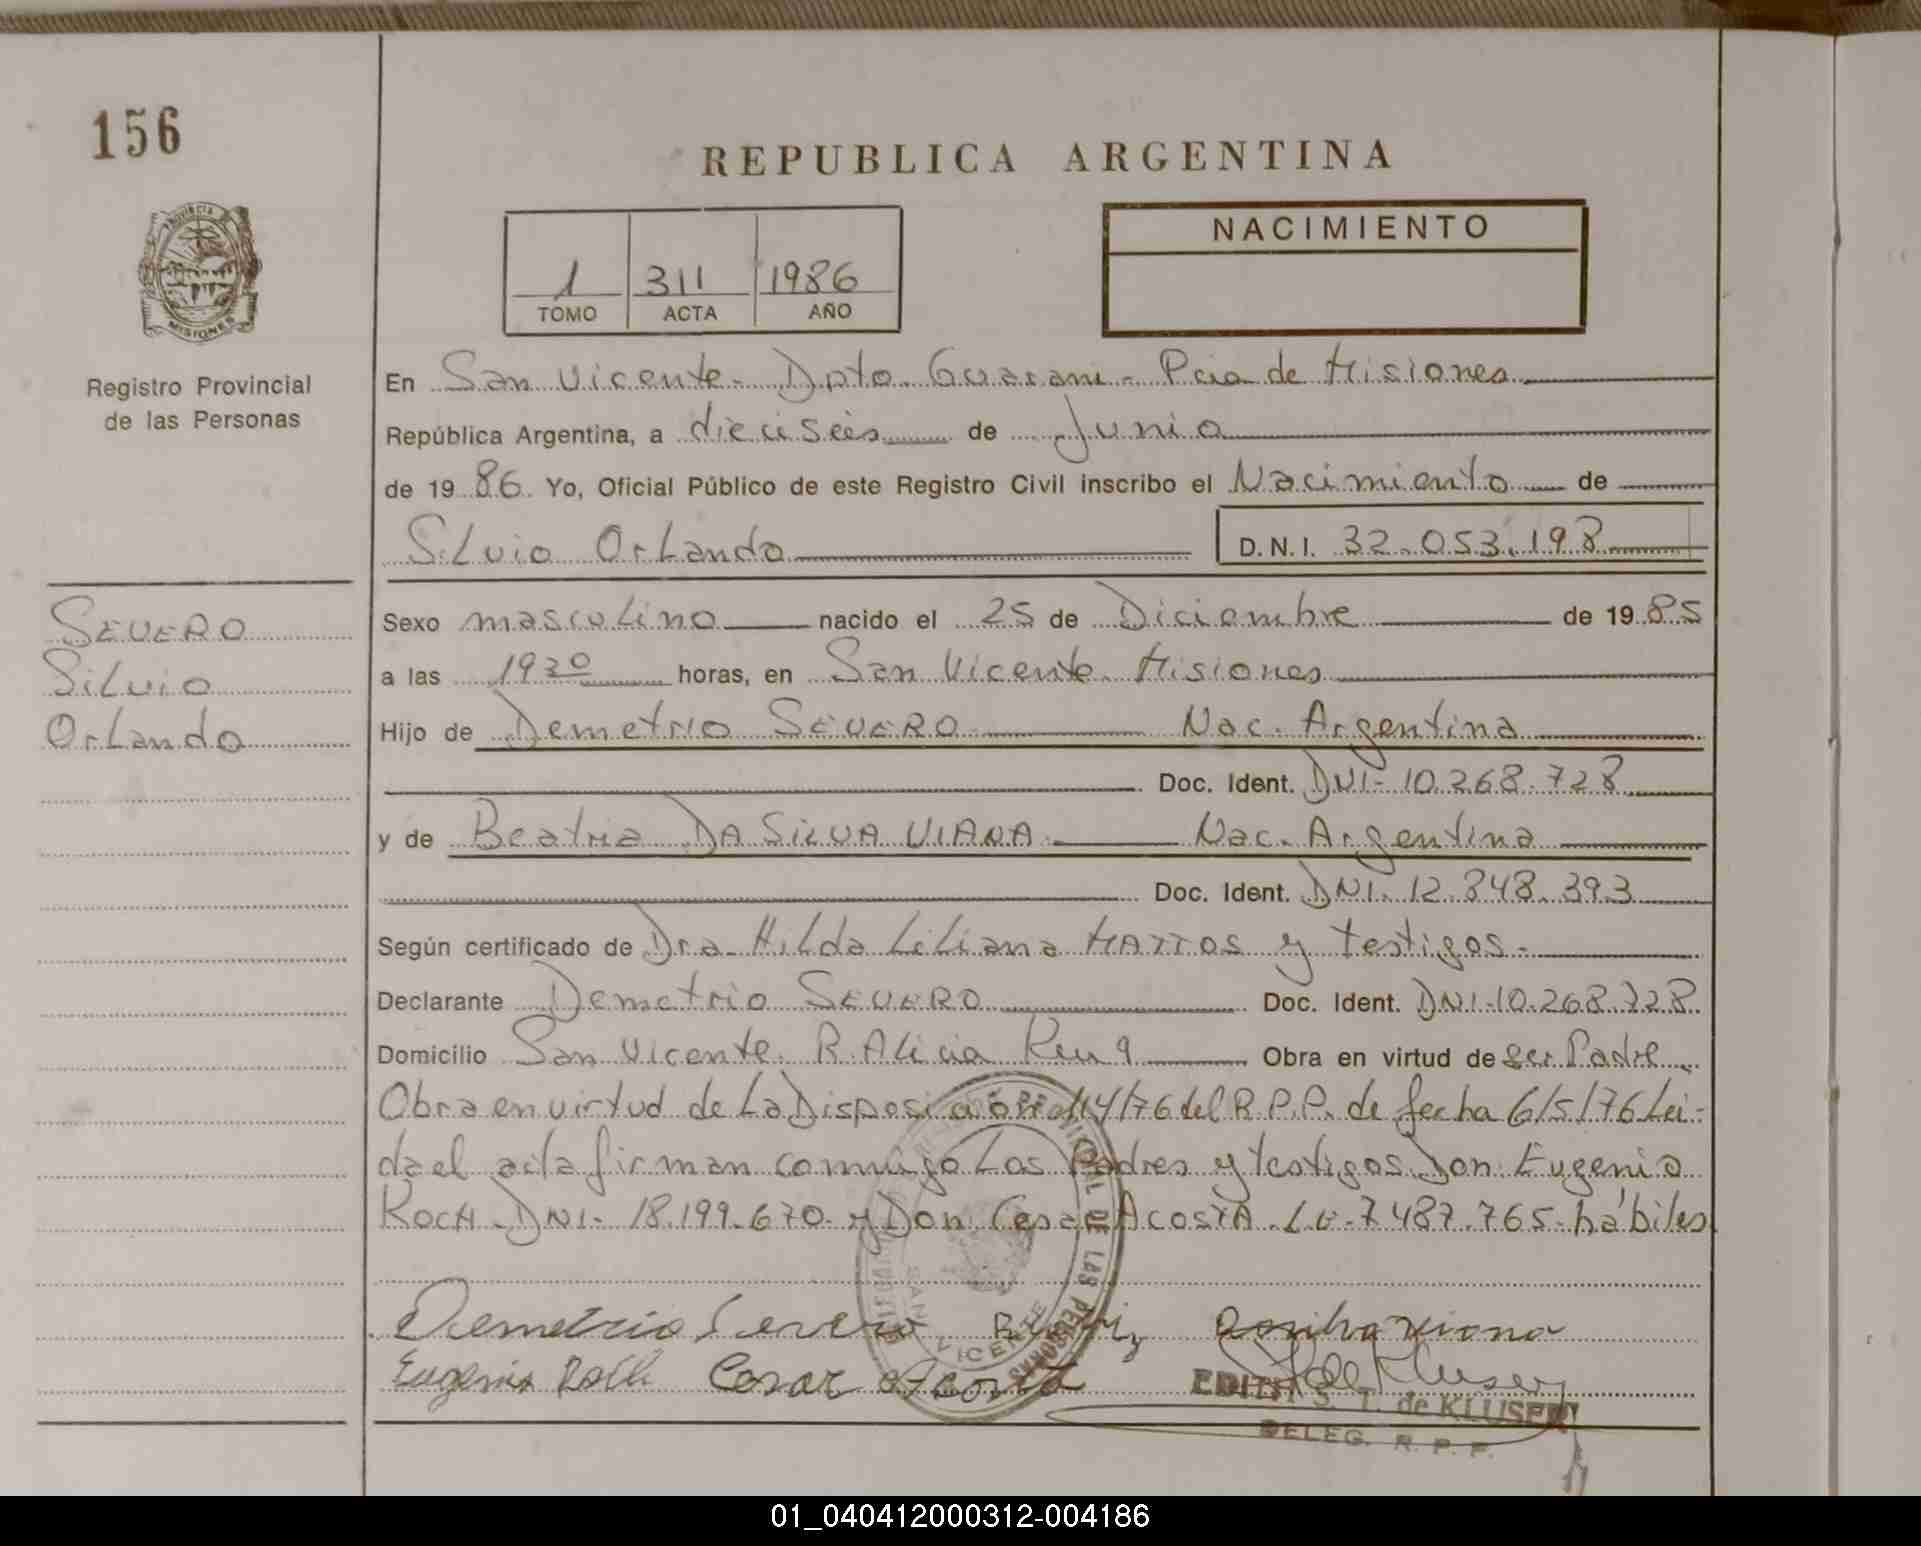 156
REPUBLICA ARGENTINA
NACIMIENTO
1 311 1986
TOMO ACTA AÑO
MISIONES
Registro Provincial
de las Personas
En San Vicente - Dpto Guarani - Pcia de Misiones
República Argentina, a dieciseis de Junio
de 19 86 Yo, Oficial Público de este Registro Civil inscribo el Nacimiento de
Silvio Orlando D.N.I. 32.053.198
SEVERO
Silvio
Orlando
Sexo masculino nacido el 25 de Diciembre de 19 85
a las 1930 horas, en San Vicente Misiones
Hijo de Demetrio SEVERO Nac. Argentina
Doc. Ident. DNI- 10.268.728
y de Beatriz DA SILVA VIANA Nac. Argentina
Doc. Ident. DNI. 12.848.393
Según certificado de Dra. Hilda Liliana MATTOS y testigos.-
Declarante Demetrio SEVERO Doc. Ident. DNI-10.268.728
Domicilio San Vicente R. Alicia 9 Obra en virtud de ser Padre
Obra en virtud de La Disposicion 14/76 del R.P.P. de fecha 6/5/76 Lei-
da el acta firman conmigo Los Padres y testigos Don Eugenio
KOCH - DNI- 18.199.670 y Don Cesar ACOSTA L.E-7.487.765- hábiles
Demetrio Severo Beatriz Dasilva Viana
Eugenio Cesar Acosta de Kluser
VICENTE
EDITH S. T. de KLUSER
DELEG. R. P. P.
01_040412000312-004186